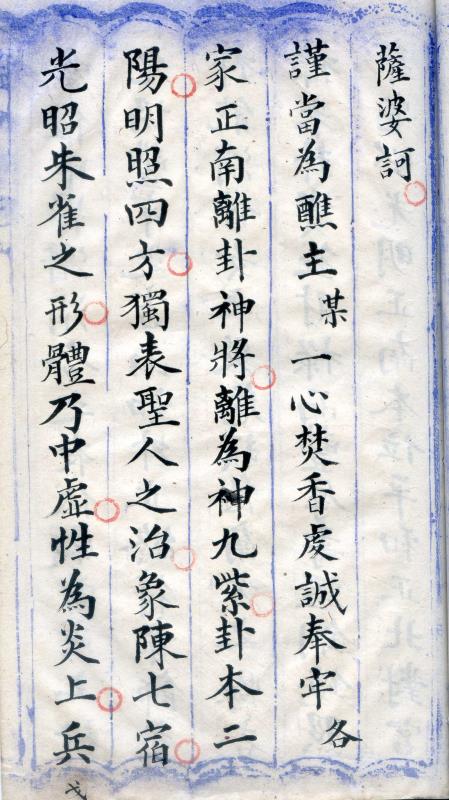 薩婆訶
謹當為醮主某一心焚香虔誠奉牢各
家正南離卦神將離為神九紫卦本二
陽明照四方獨表聖人之治象陳七宿
光昭朱雀之形體乃中虛性為炎上兵
戈